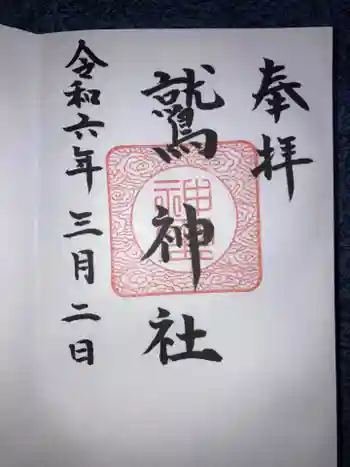 奉拝
鷲神社
令和六年三月二日